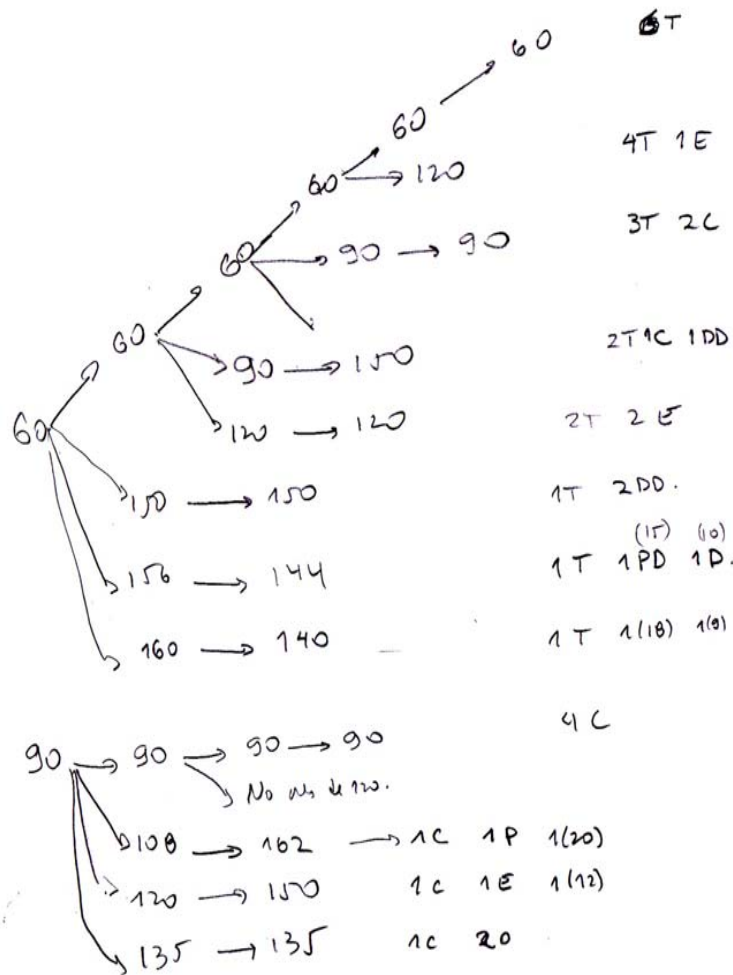 60 6T
60
60 → 120 4T 1E
60 → 90 → 90 3T 2C
60 → 90 → 150 2T 1C 1DD
→ 120 → 120 2T 2E
60 → 150 → 150 1T 2DD.
(15) (10)
→ 156 → 144 1T 1PD 1D.
→ 160 → 140 1T 1(18) 1(9)
4C
90 → 90 → 90 → 90
→ No de 120.
→ 108 → 162 → 1C 1P 1(20)
→ 120 → 150 1C 1E 1(12)
→ 135 → 135 1C 2O